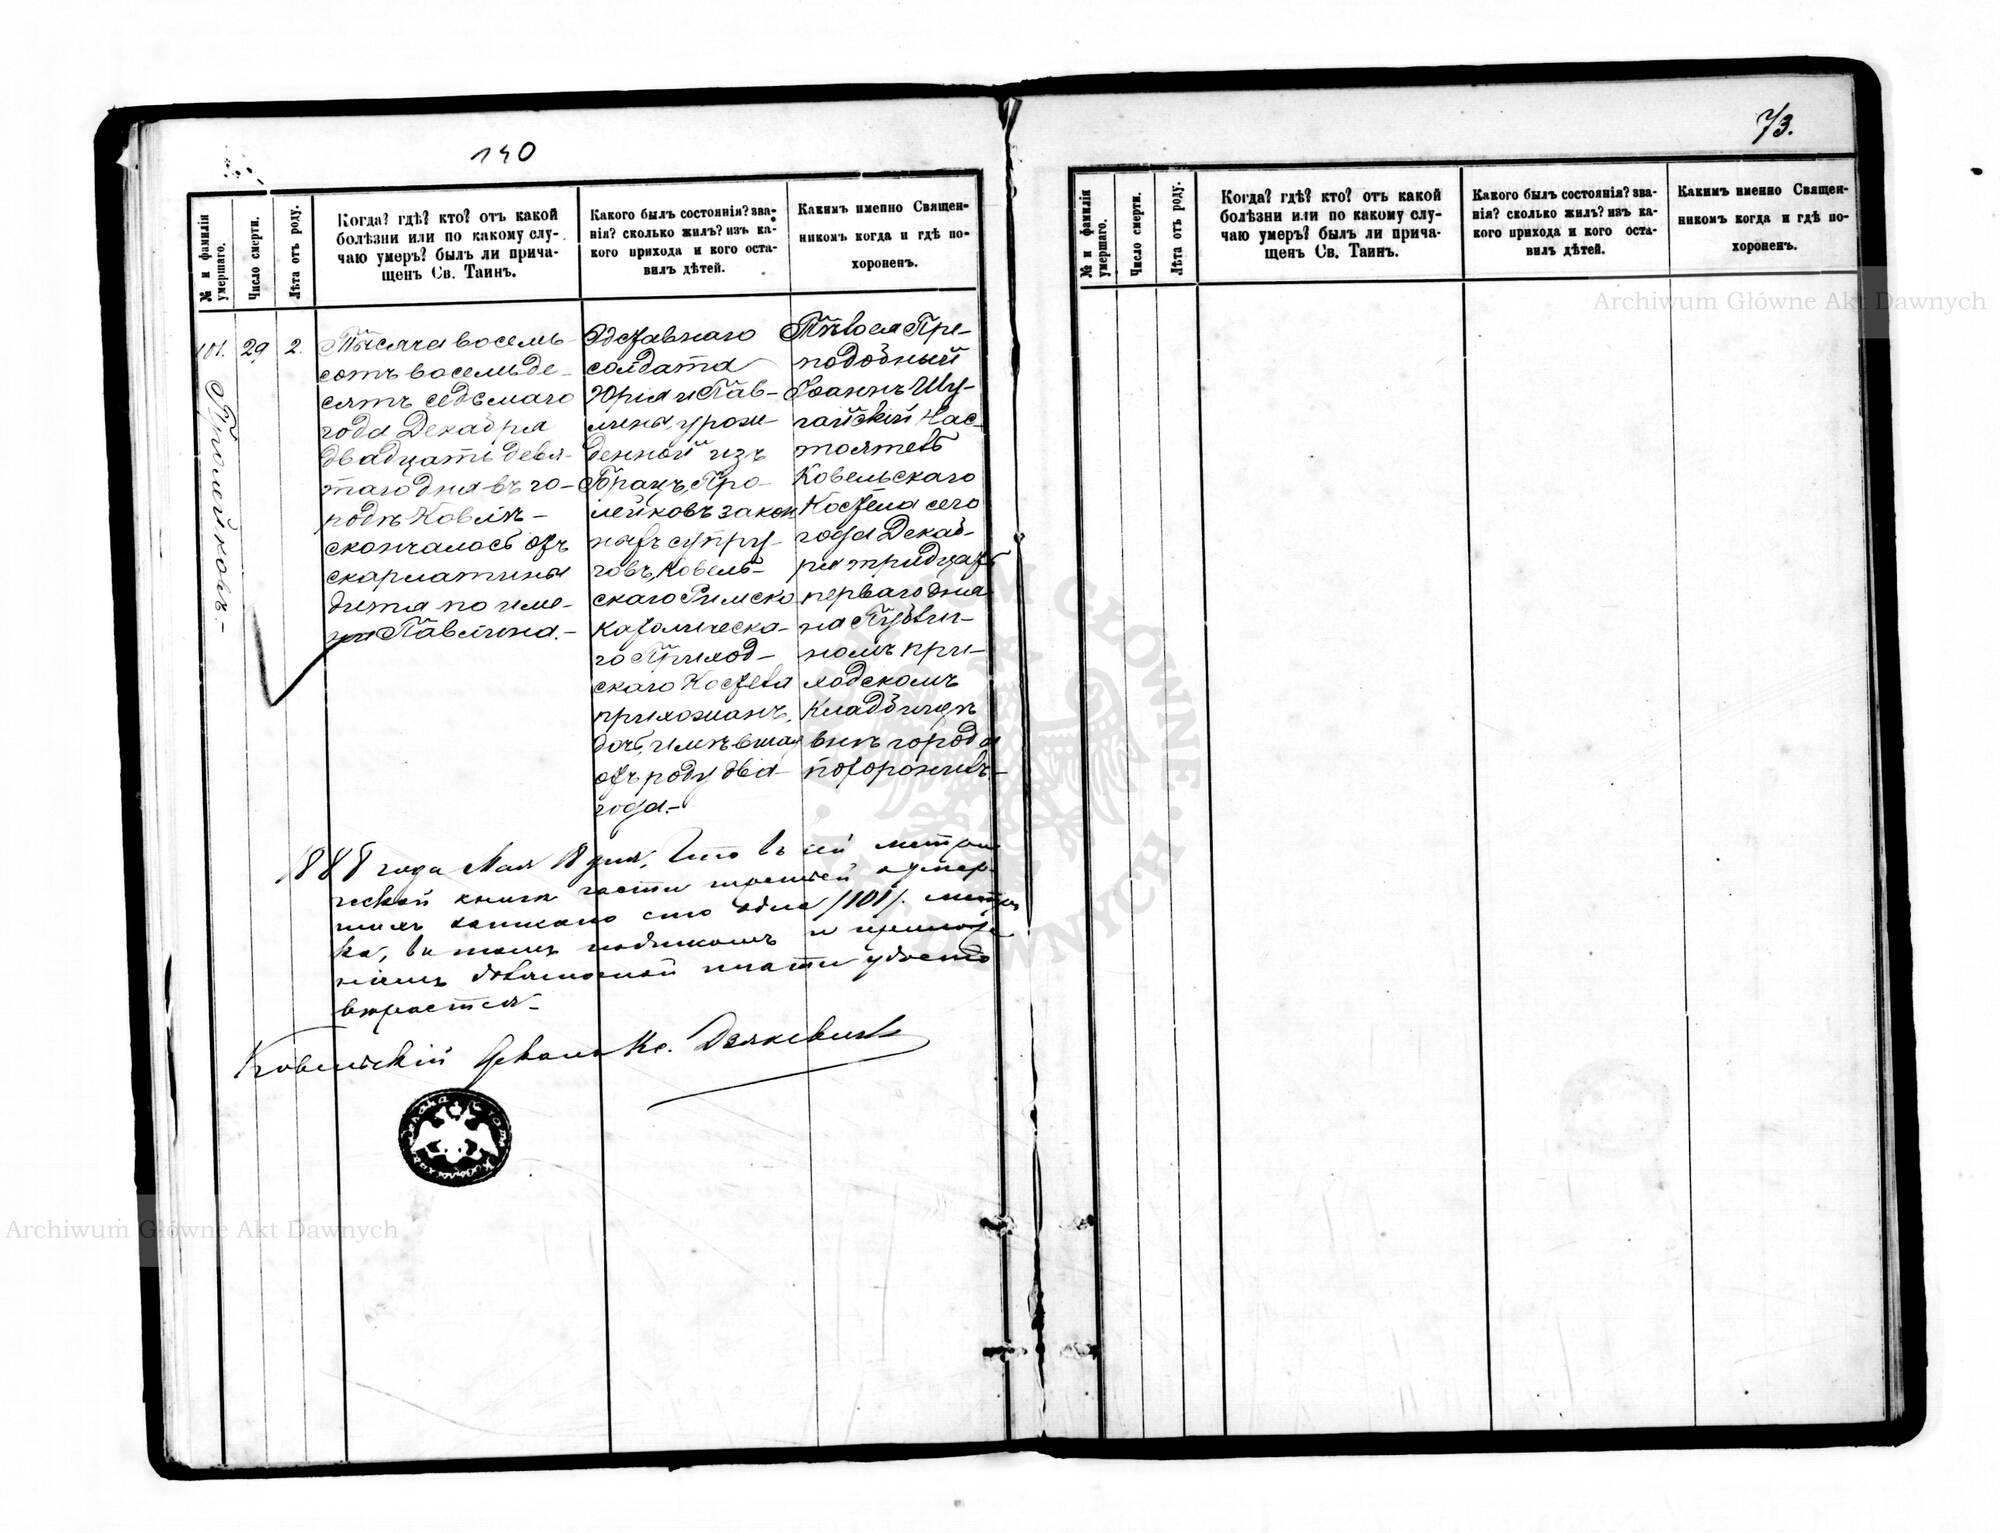 140
73.
№ и фамилія умершаго.
Число смерти.
Лѣта отъ роду.
Когда? гдѣ? кто? отъ какой
болѣзни или по какому слу-
чаю умеръ? былъ ли прича-
щенъ Св. Таинъ.
Какого былъ состоянія? зва-
нія? сколько жилъ? изъ ка-
кого прихода и кого оста-
вилъ дѣтей.
Каким именно Священ-
никомъ когда и гдѣ по-
хороненъ.
101.
Пролейковъ.-
29
2.
Тысяча восемь-
сотъ восемьде-
сятъ седьмаго
года Декабря
двадцать девя-
таго дня въ го-
родѣ Ковлѣ-
скончалось отъ
скарлатины
дитя по име-
ни Павлина.-
Отставнаго
солдата
Юрія и Пав-
лины, урож-
денной изъ
Брацъ, Про-
лейковъ закон
ныхъ супру-
говъ, Ковель-
скаго Римско
Католическа-
го Приход-
скаго Костела
прихожанъ,
дочь, имѣвшая
отъ роду два
года.-
Тѣло ея Пре-
подобный
Іоаннъ Шу-
гайскій Нас-
тоятель
Ковельскаго
Костела сего
года Декаб-
ря тридцать
перваго дня
на Публич-
номъ при-
ходскомъ
Кладбищѣ
внѣ города
похоронилъ-
1888 года Мая 18 дня, Что въ сей метри
ческой книги части третьей о умер-
шихъ записано сто одна /101/. метри
ка, въ томъ подписомъ и приложе
ніемъ должностной печати удосто
вѣряется-
Ковельскій Деканъ Кс.
Когда? гдѣ? кто? отъ какой
болѣзни или по какому слу-
чаю умеръ? былъ ли прича-
щенъ Св. Таинъ.
Какого былъ состоянія? зва-
нія? сколько жилъ? изъ ка-
кого прихода и кого оста-
вилъ дѣтей.
Каким именно Священ-
никомъ когда и гдѣ по-
хороненъ.
№ и фамилія умершаго.
Число смерти.
Лѣта отъ роду.
Archiwum Główne Akt Dawnych
Archiwum Główne Akt Dawnych